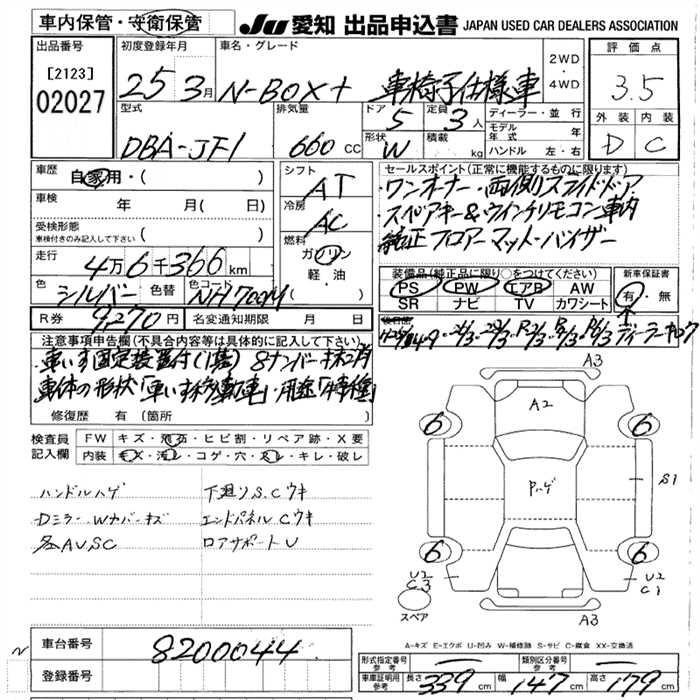 車内保管・守衛保管
JU 愛知 出品申込書 JAPAN USED CAR DEALERS ASSOCIATION
出品番号
[2123]
02027
初度登録年月
25 3月
車名・グレード
N-BOX+ 車椅子仕様車
2WD
・
4WD
評価点
3.5
外装 内装
D C
型式
DBA-JF1
排気量
660 CC
ドア
5
定員
3人
形状
W
積載
kg
ディーラー・並行
モデル年式 年
ハンドル 左・右
車歴
自家用・( )
車検 年 月( 日)
受検形態
車検付きのみ記入して下さい ( )
走行
4万6千366km
色
シルバー
色替
色コード
NH700M
R券 9,270円
名変通知期限 月 日
シフト
AT
冷房
AC
燃料
ガソリン
軽・油
セールスポイント(正常に機能するものに限ります)
ワンオーナー・両側スライドドア
スペアキー&ウインチリモコン車内
純正フロアーマット・バイザー
装備品(純正品に限り○をつけてください)
PS PW エアB AW
SR ナビ TV カワシート
新車保証書
有・無
注意事項申告欄(不具合内容等は具体的に記入して下さい)
車いす固定装置付(1基) 8ナンバー
車体の形状「車いす移動車」・用途「特種」
修復歴 有 (箇所 )
検査員
記入欄
FW キズ・飛石・ヒビ割・リペア跡・X要
内装 キズ・汚レ・コゲ・穴・スレ・キレ・破レ
ハンドルハゲ
Dミラー Wナバーキズ
各AUSC
下廻りS.Cウキ
エンドパネルCウキ
ロアサポートU
A3
A2
P.ハゲ
6
6
6
6
S1
U2
C3
U2
C1
A3
スペア
A-キズ E-エクボ U-凹み W-補修跡 S-サビ C-腐食 XX-交換済
車台番号
8200044
登録番号
形式指定番号
参考
類別区分番号
参考
車庫証明用
参考
長さ 339cm
幅 147cm
高さ 179cm